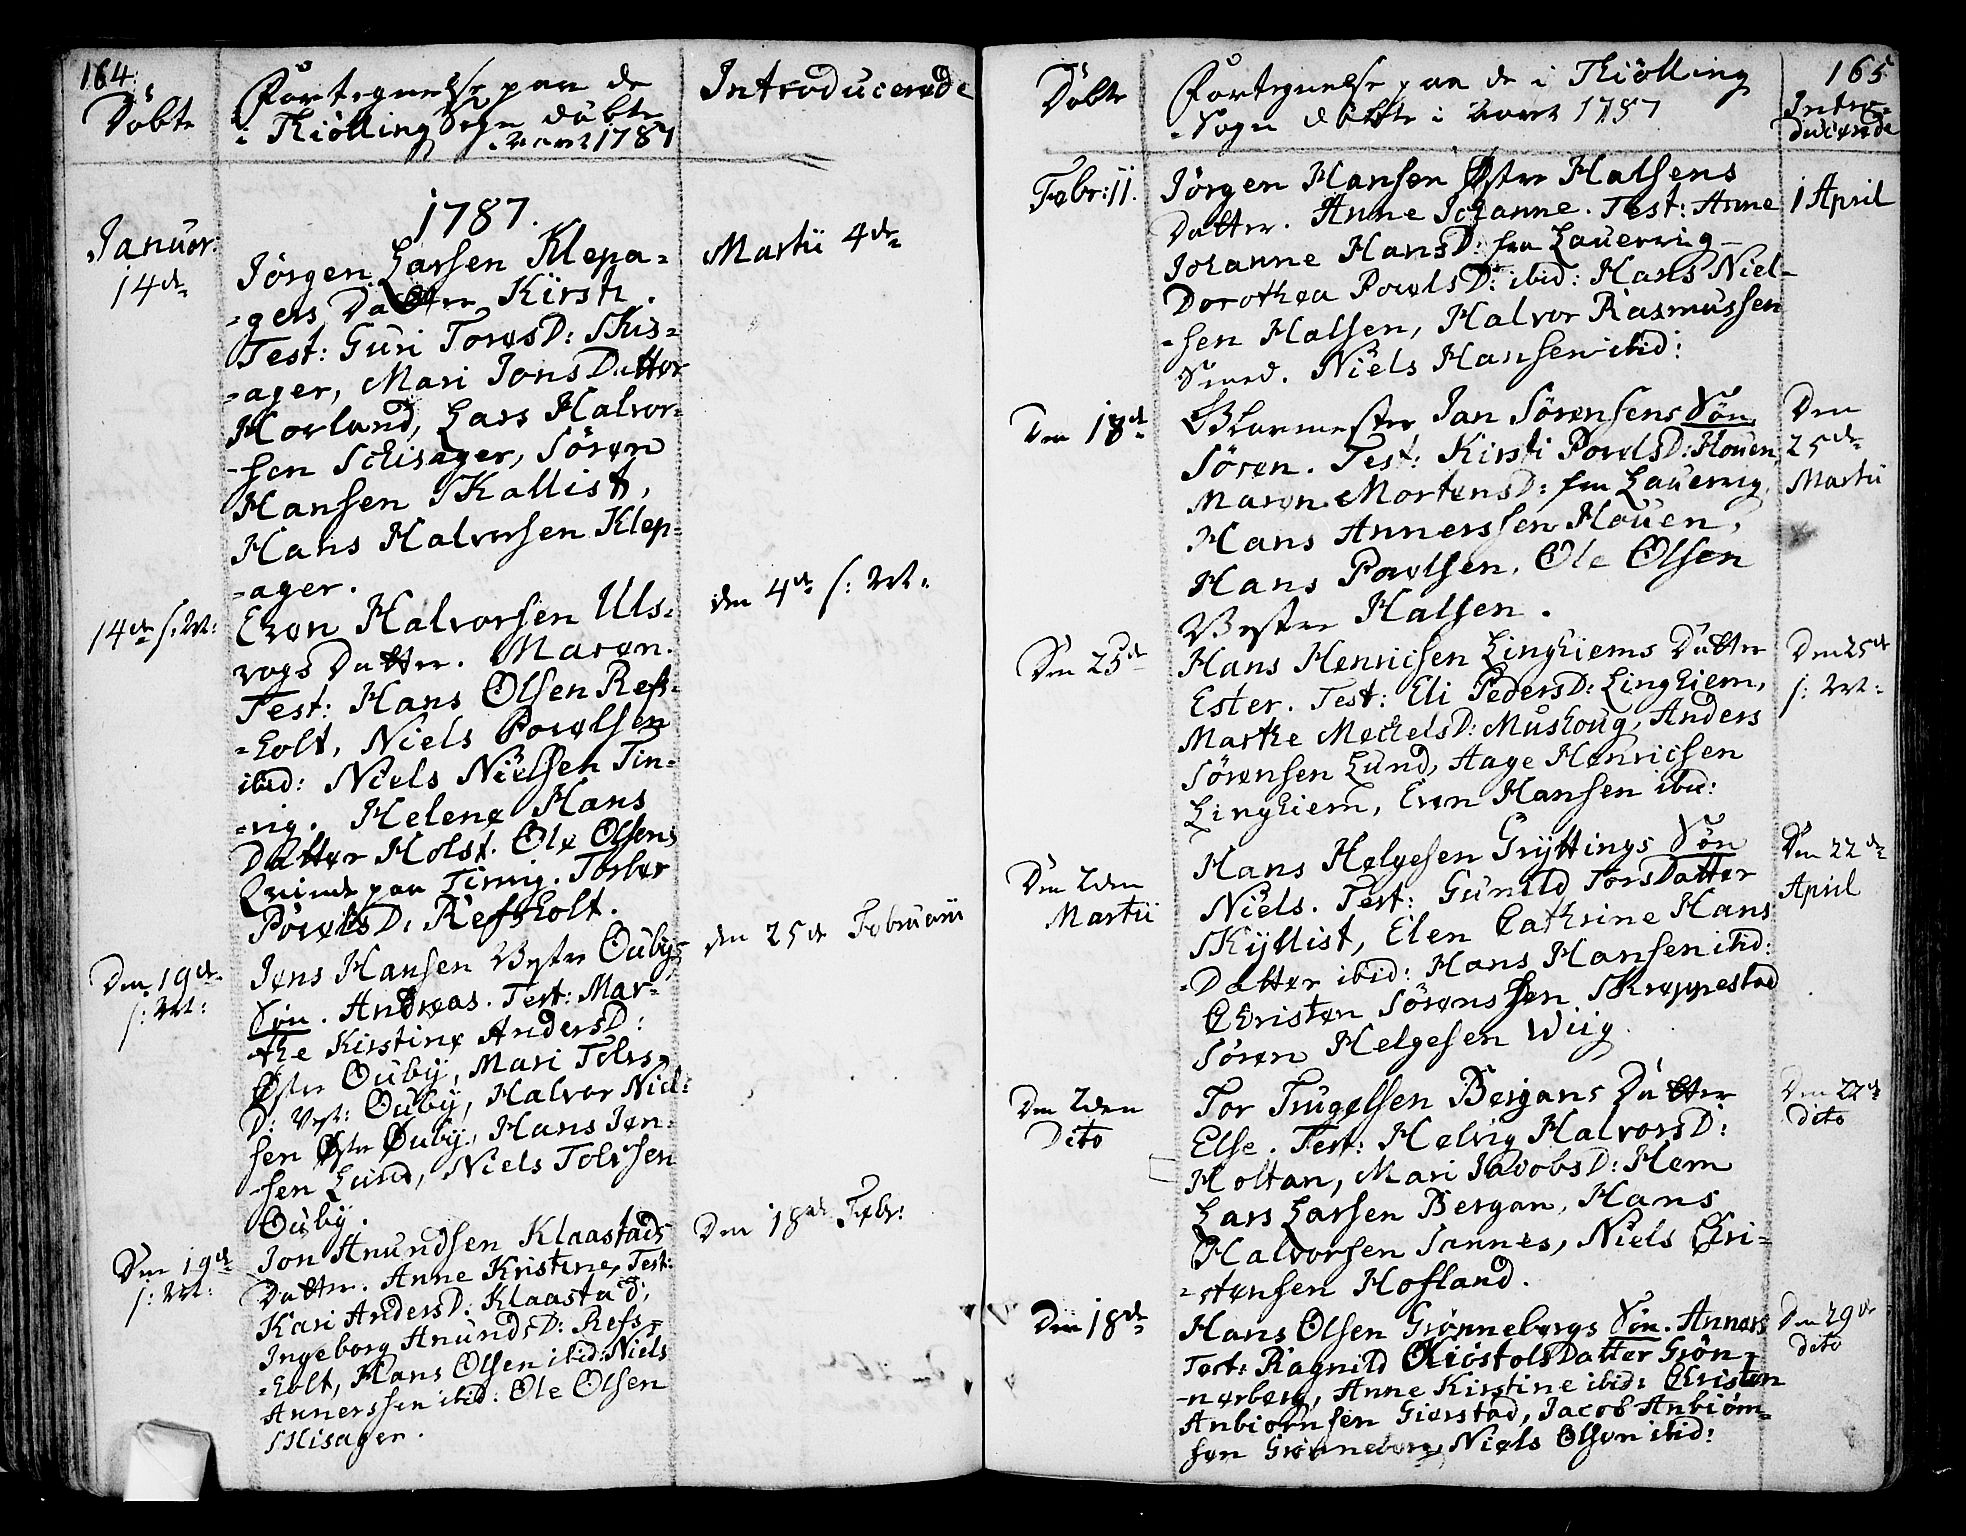 164.
Döbte
Fortegnelse paa de
i Thiölling Sogn döbte
Aaret 1787
Introducerede
1787.
Januar.
14de
Jörgen Larsen Klepa-
-gers Datter Kirsti.
Test: Guri ToresD: Skis-
-ager, Mari Jons Datter
Horland, Lars Halvor-
-sen Schisager, Sören
Hansen Skallist,
Hans Halvorsen Klep-
-ager.
Martii 4de
14de s: M:
Even Halvorsen Uls-
vogs Datter. Maren.
Test: Hans Olsen Refs-
-holt, Niels Powelsen
ibid: Niels Nielsen Tin-
-vig. Helene Hans
Datter Holst. Ole Olsens
Qvinde paa Tinvig. Torber
PowelsD: Refsholt.
den 4de s: M:
Den 19de
s: M:
Jens Hansen Vestre Oubys
Sön. Andreas. Test: Mar-
-the Kirstine AndersD:
Öster Oubÿ, Mari Tolvs-
D: Vest: Oubÿ, Halvor Niel-
sen Öster Oubÿ, Hans Jen-
-sen Lund, Niels Tolvsen
Ouby.
den 25de Februarii
Den 19de
s: M:
Jon Anundsen Klaastads
Datter. Anne Kristine, Test:
Kari AndersD: Klaastad,
Ingeborg AnundsD: Refs-
-holt, Hans Olsen ibid: Niels
Annerssen ibid: Ole Olsen
Skisager.
Den 18de Febr:
165
Döbte
Fortegnelse paa de i Thiölling
-Sogn döbte i Aaret 1787
Intro-
ducerede
Febr: 11.
Jörgen Hansen Östre Halsens
Datter. Anne Johanne. Test: Anne
Johanne HansD: fra Lauervig-
Dorothea PowelsD: ibid: Hans Niel-
-sen Halsen, Halvor Rasmussen
Smed. Niels Hansen ibid:
1 April
Den 18de
Glarmester Jan Sörensens Sön
Sören. Test: Kirsti PowelsD: Houen,
Maren MortensD: fra Lauervig,
Hans Annerssen Houen,
Hans Powelsen, Ole Olsen
Vestre Halsen.
Den
25de
Martii
Den 25de
Hans Henricsen Linghiems Datter
Ester. Test: Eli PedersD: Linghiem,
Marthe MechelsD: Mushoug, Anders
Sörensen Lund, Aage Henricsen
Linghiem, Even Hansen ibid:
Den 25de
s: M:
Den 2den
Martii
Hans Helgesen Gryttings Sön
Niels. Test: Gunild Tors Datter
Skÿllist, Elen Cathrine Hans
-Datter ibid: Hans Hansen ibid:
Christen Sörenssen Skreppestad
Sören Helgesen Wiig
Den 22de
April
Den 2den
Dito
Tor Trugelsen Bergans Datter
Else. Test: Helvig HalvorsD:
Holtan, Mari JacobsD: Hem
Lars Larsen Bergan, Hans
Halvorsen Sannes, Niels Chri-
-stensen Hofland.
Den 22de
dito
Den 18de
Hans Olsen Grönnebergs Sön. Anners
Test: Ragnild Kiöstols Datter Grön-
-neberg, Anne Kirstine ibid: Christen
Anbiörnsen Gierstad, Jacob Anbiörn-
sen Grönneberg, Niels Olsen ibid:
Den 29de
dito